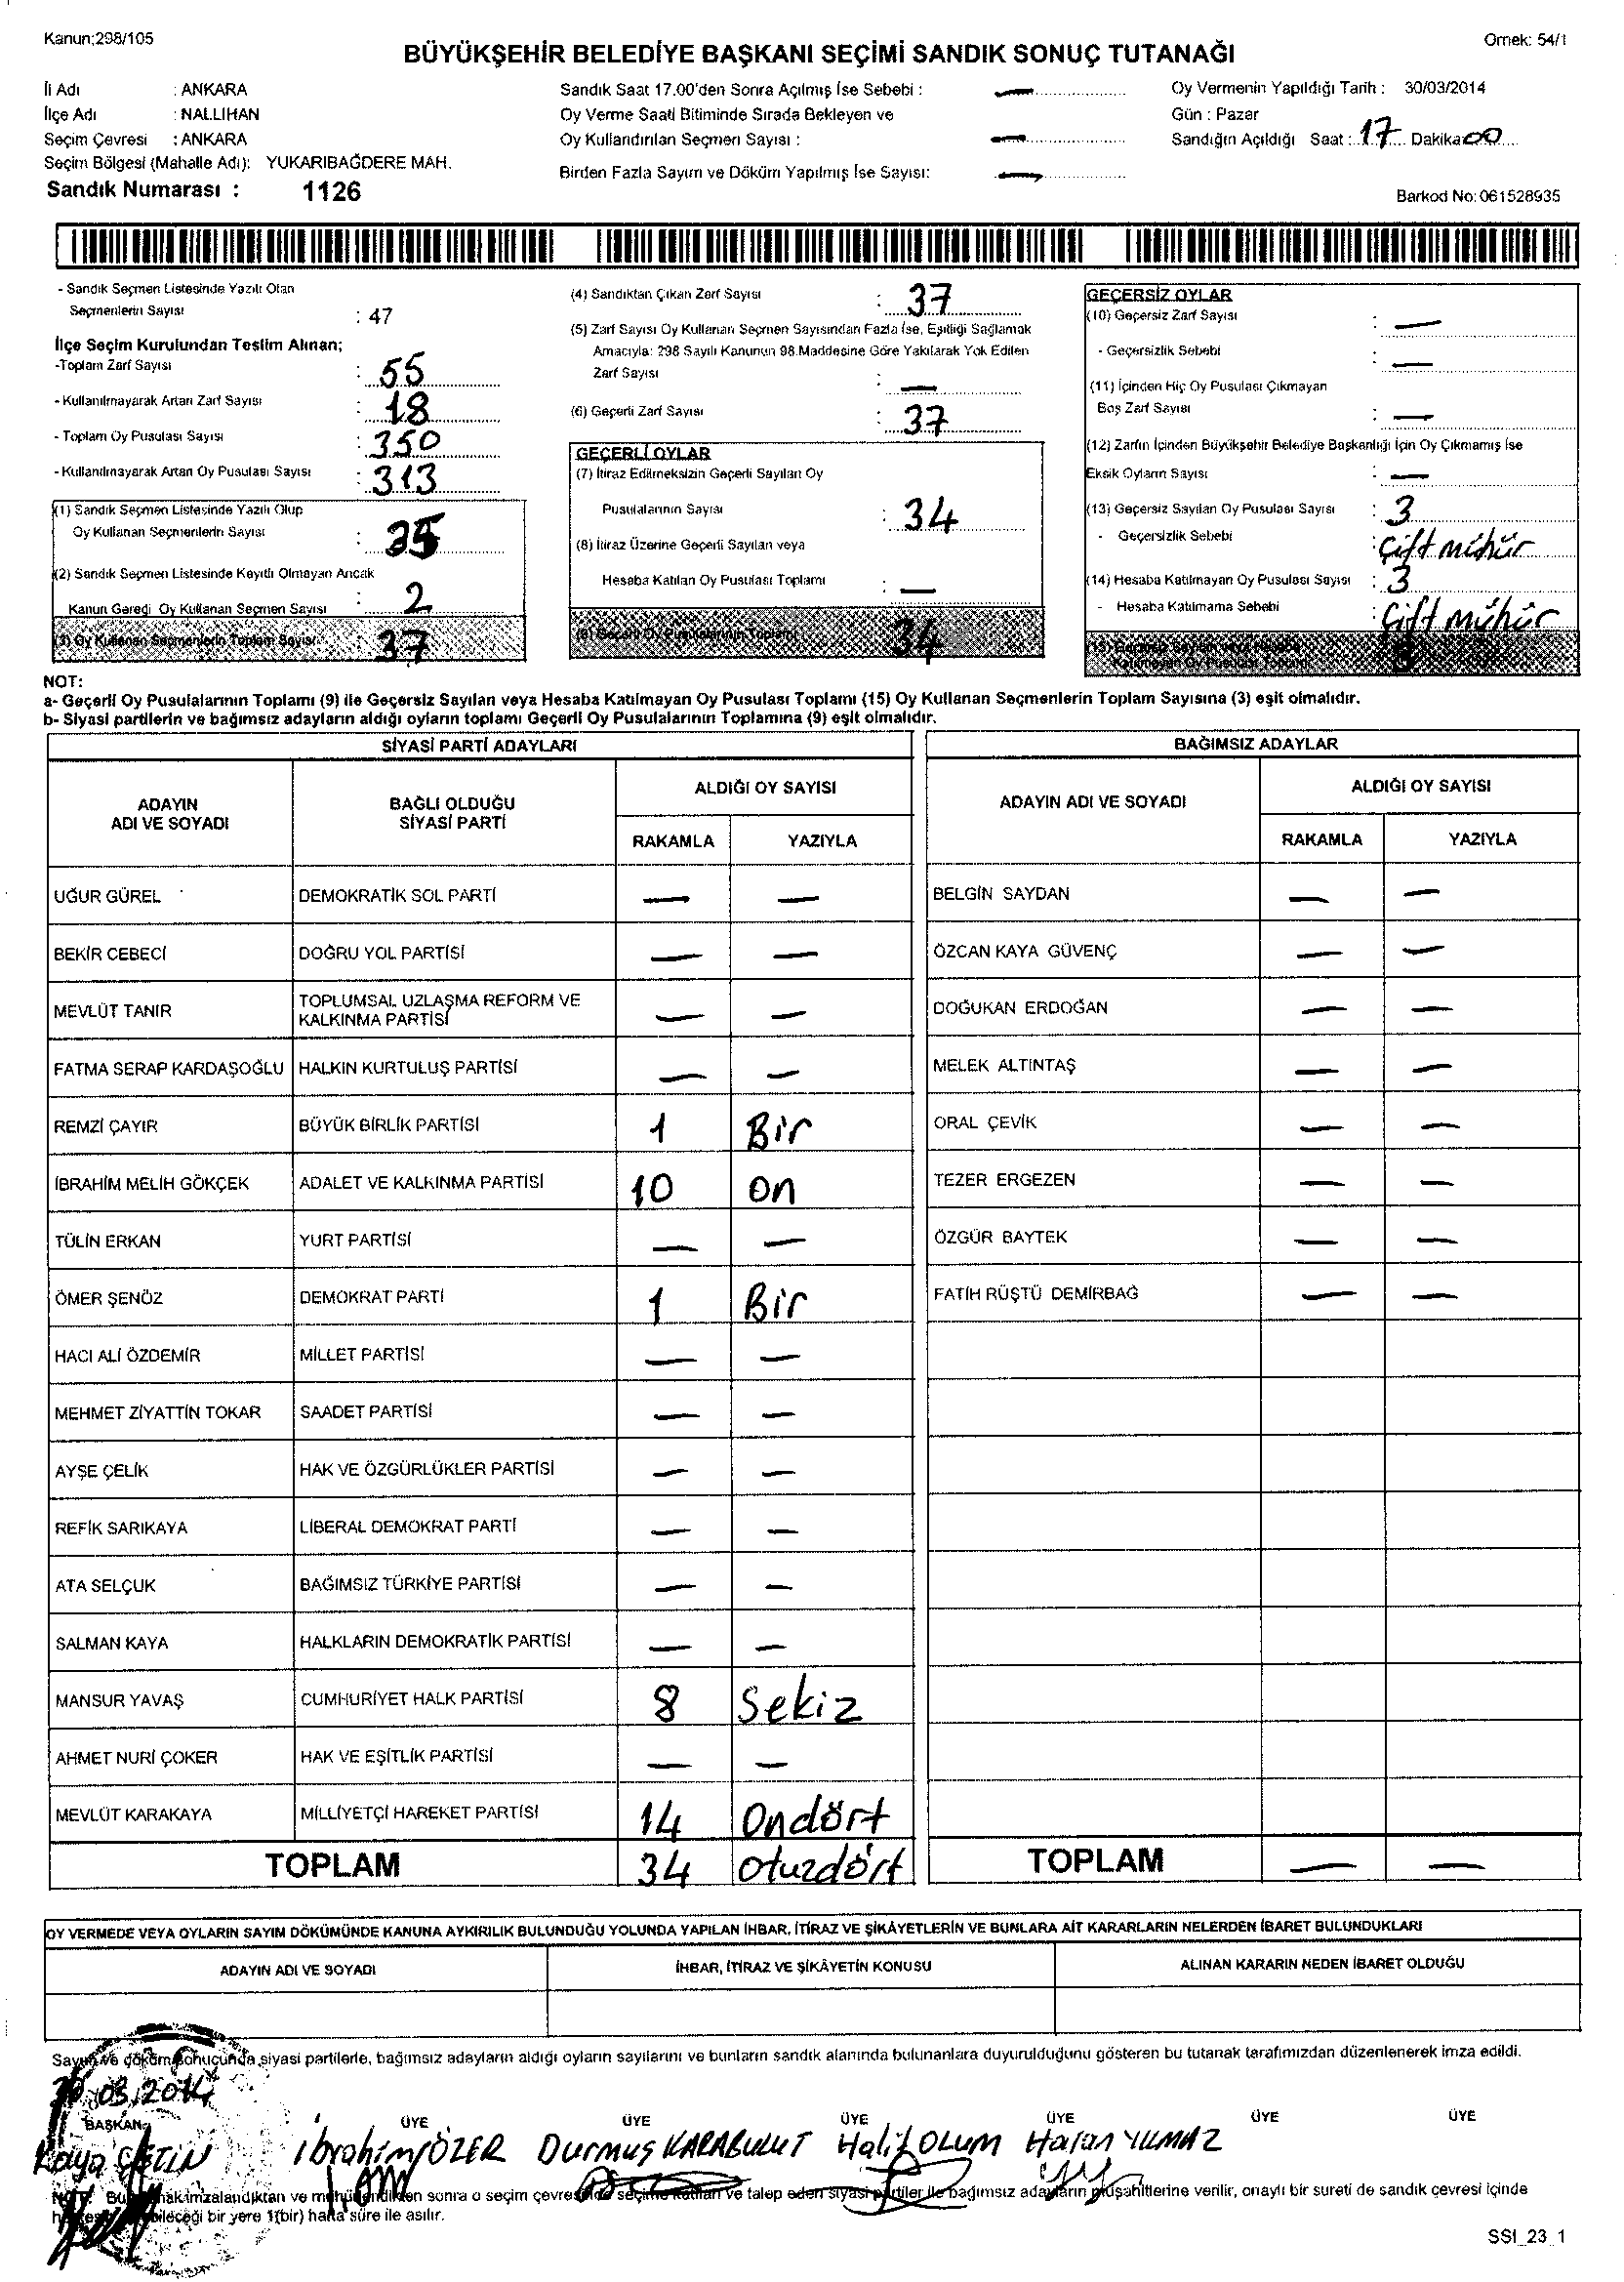 Kanun;298/105
Örnek: 54/1
BÜYÜKŞEHİR BELEDİYE BAŞKANI SEÇİMİ SANDIK SONUÇ TUTANAĞI
İli Adı : ANKARA
İlçe Adı : NALLIHAN
Seçim Çevresi : ANKARA
Seçim Bölgesi (Mahalle Adı): YUKARIBAĞDERE MAH.
Sandık Numarası : 1126
Sandık Saat 17.00'den Sonra Açılmış İse Sebebi : —
Oy Verme Saati Bitiminde Sırada Bekleyen ve
Oy Kullandırılan Seçmen Sayısı : —
Birden Fazla Sayım ve Döküm Yapılmış İse Sayısı: —
Oy Vermenin Yapıldığı Tarih : 30/03/2014
Gün : Pazar
Sandığın Açıldığı Saat : 17 Dakika 00
Barkod No: 061528935
- Sandık Seçmen Listesinde Yazılı Olan
Seçmenlerin Sayısı : 47
İlçe Seçim Kurulundan Teslim Alınan;
-Toplam Zarf Sayısı : 55
- Kullanılmayarak Artan Zarf Sayısı : 18
- Toplam Oy Pusulası Sayısı : 350
- Kullanılmayarak Artan Oy Pusulası Sayısı : 313
(1) Sandık Seçmen Listesinde Yazılı Olup
Oy Kullanan Seçmenlerin Sayısı : 35
(2) Sandık Seçmen Listesinde Kayıtlı Olmayan Ancak
Kanun Gereği Oy Kullanan Seçmen Sayısı : 2
(3) Oy Kullanan Seçmenlerin Toplam Sayısı 37
(4) Sandıktan Çıkan Zarf Sayısı : 37
(5) Zarf Sayısı Oy Kullanan Seçmen Sayısından Fazla İse, Eşitliği Sağlamak
Amacıyla: 298 Sayılı Kanunun 98.Maddesine Göre Yakılarak Yok Edilen
Zarf Sayısı : —
(6) Geçerli Zarf Sayısı : 37
GEÇERLİ OYLAR
(7) İtiraz Edilmeksizin Geçerli Sayılan Oy
Pusulalarının Sayısı : 34
(8) İtiraz Üzerine Geçerli Sayılan veya
Hesaba Katılan Oy Pusulası Toplamı : —
(9) Geçerli Oy Pusulalarının Toplamı 34
GEÇERSİZ OYLAR
(10) Geçersiz Zarf Sayısı : —
- Geçersizlik Sebebi : —
(11) İçinden Hiç Oy Pusulası Çıkmayan
Boş Zarf Sayısı : —
(12) Zarfın İçinden Büyükşehir Belediye Başkanlığı İçin Oy Çıkmamış İse
Eksik Oyların Sayısı : —
(13) Geçersiz Sayılan Oy Pusulası Sayısı : 3
- Geçersizlik Sebebi : Çift mühür
(14) Hesaba Katılmayan Oy Pusulası Sayısı : 3
- Hesaba Katılmama Sebebi : Çift mühür
(15) Geçersiz Sayılan veya Hesaba
Katılmayan Oy Pusulası Toplamı
NOT:
a- Geçerli Oy Pusulalarının Toplamı (9) ile Geçersiz Sayılan veya Hesaba Katılmayan Oy Pusulası Toplamı (15) Oy Kullanan Seçmenlerin Toplam Sayısına (3) eşit olmalıdır.
b- Siyasi partilerin ve bağımsız adayların aldığı oyların toplamı Geçerli Oy Pusulalarının Toplamına (9) eşit olmalıdır.
SİYASİ PARTİ ADAYLARI
ADAYIN ADI VE SOYADI BAĞLI OLDUĞU SİYASİ PARTİ ALDIĞI OY SAYISI
RAKAMLA YAZIYLA
UĞUR GÜREL DEMOKRATİK SOL PARTİ — —
BEKİR CEBECİ DOĞRU YOL PARTİSİ — —
MEVLÜT TANIR TOPLUMSAL UZLAŞMA REFORM VE KALKINMA PARTİSİ — —
FATMA SERAP KARDAŞOĞLU HALKIN KURTULUŞ PARTİSİ — —
REMZİ ÇAYIR BÜYÜK BİRLİK PARTİSİ 1 Bir
İBRAHİM MELİH GÖKÇEK ADALET VE KALKINMA PARTİSİ 10 on
TÜLİN ERKAN YURT PARTİSİ — —
ÖMER ŞENÖZ DEMOKRAT PARTİ 1 Bir
HACI ALİ ÖZDEMİR MİLLET PARTİSİ — —
MEHMET ZİYATTİN TOKAR SAADET PARTİSİ — —
AYŞE ÇELİK HAK VE ÖZGÜRLÜKLER PARTİSİ — —
REFİK SARIKAYA LİBERAL DEMOKRAT PARTİ — —
ATA SELÇUK BAĞIMSIZ TÜRKİYE PARTİSİ — —
SALMAN KAYA HALKLARIN DEMOKRATİK PARTİSİ — —
MANSUR YAVAŞ CUMHURİYET HALK PARTİSİ 8 Sekiz
AHMET NURİ ÇOKER HAK VE EŞİTLİK PARTİSİ — —
MEVLÜT KARAKAYA MİLLİYETÇİ HAREKET PARTİSİ 14 Ondört
TOPLAM 34 Otuzdört
BAĞIMSIZ ADAYLAR
ADAYIN ADI VE SOYADI ALDIĞI OY SAYISI
RAKAMLA YAZIYLA
BELGİN SAYDAN — —
ÖZCAN KAYA GÜVENÇ — —
DOĞUKAN ERDOĞAN — —
MELEK ALTINTAŞ — —
ORAL ÇEVİK — —
TEZER ERGEZEN — —
ÖZGÜR BAYTEK — —
FATİH RÜŞTÜ DEMİRBAĞ — —
TOPLAM — —
OY VERMEDE VEYA OYLARIN SAYIM DÖKÜMÜNDE KANUNA AYKIRILIK BULUNDUĞU YOLUNDA YAPILAN İHBAR, İTİRAZ VE ŞİKÂYETLERİN VE BUNLARA AİT KARARLARIN NELERDEN İBARET BULUNDUKLARI
ADAYIN ADI VE SOYADI İHBAR, İTİRAZ VE ŞİKÂYETİN KONUSU ALINAN KARARIN NEDEN İBARET OLDUĞU
Sayım ve döküm sonucunda siyasi partilerle, bağımsız adayların aldığı oyların sayılarını ve bunların sandık alanında bulunanlara duyurulduğunu gösteren bu tutanak tarafımızdan düzenlenerek imza edildi.
30.03.2014
BAŞKAN ÜYE ÜYE ÜYE ÜYE ÜYE ÜYE
Kaya ÇETİN İbrahim ÖZER Durmuş KARABULUT Halil OLUM Hasan YILMAZ
NOT: Bu tutanak imzalandıktan ve mühürlendikten sonra o seçim çevresinde seçime katılan ve talep eden siyasi partiler ile bağımsız adayların müşahitlerine verilir, onaylı bir sureti de sandık çevresi içinde
bileceği bir yere 1(bir) hafta süre ile asılır.
SSI_23_1